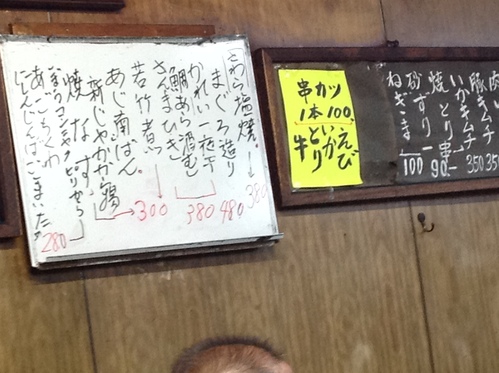 さわら塩焼 380
まぐろ造り 480
かれい一夜干
鯛あら酒むし 380
さんまひらき
若竹煮
あじ南ばん
新じゃがか揚 300
焼なす
いまりコンニャクピリから
あごちくわ
280
串カツ
1本100
えび
いか
とり
牛
肉
豚キムチ 350
いかキムチ 350
焼とり一串 90-
砂ずり
ねぎま 100